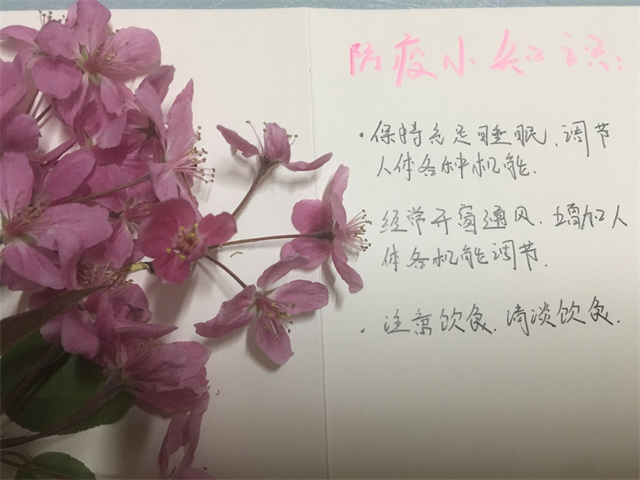 防疫小知识:
·保持充足睡眠、调节
人体各种机能.
经常开窗通风.增加人
体各机能调节.
·注意饮食.清淡饮食.